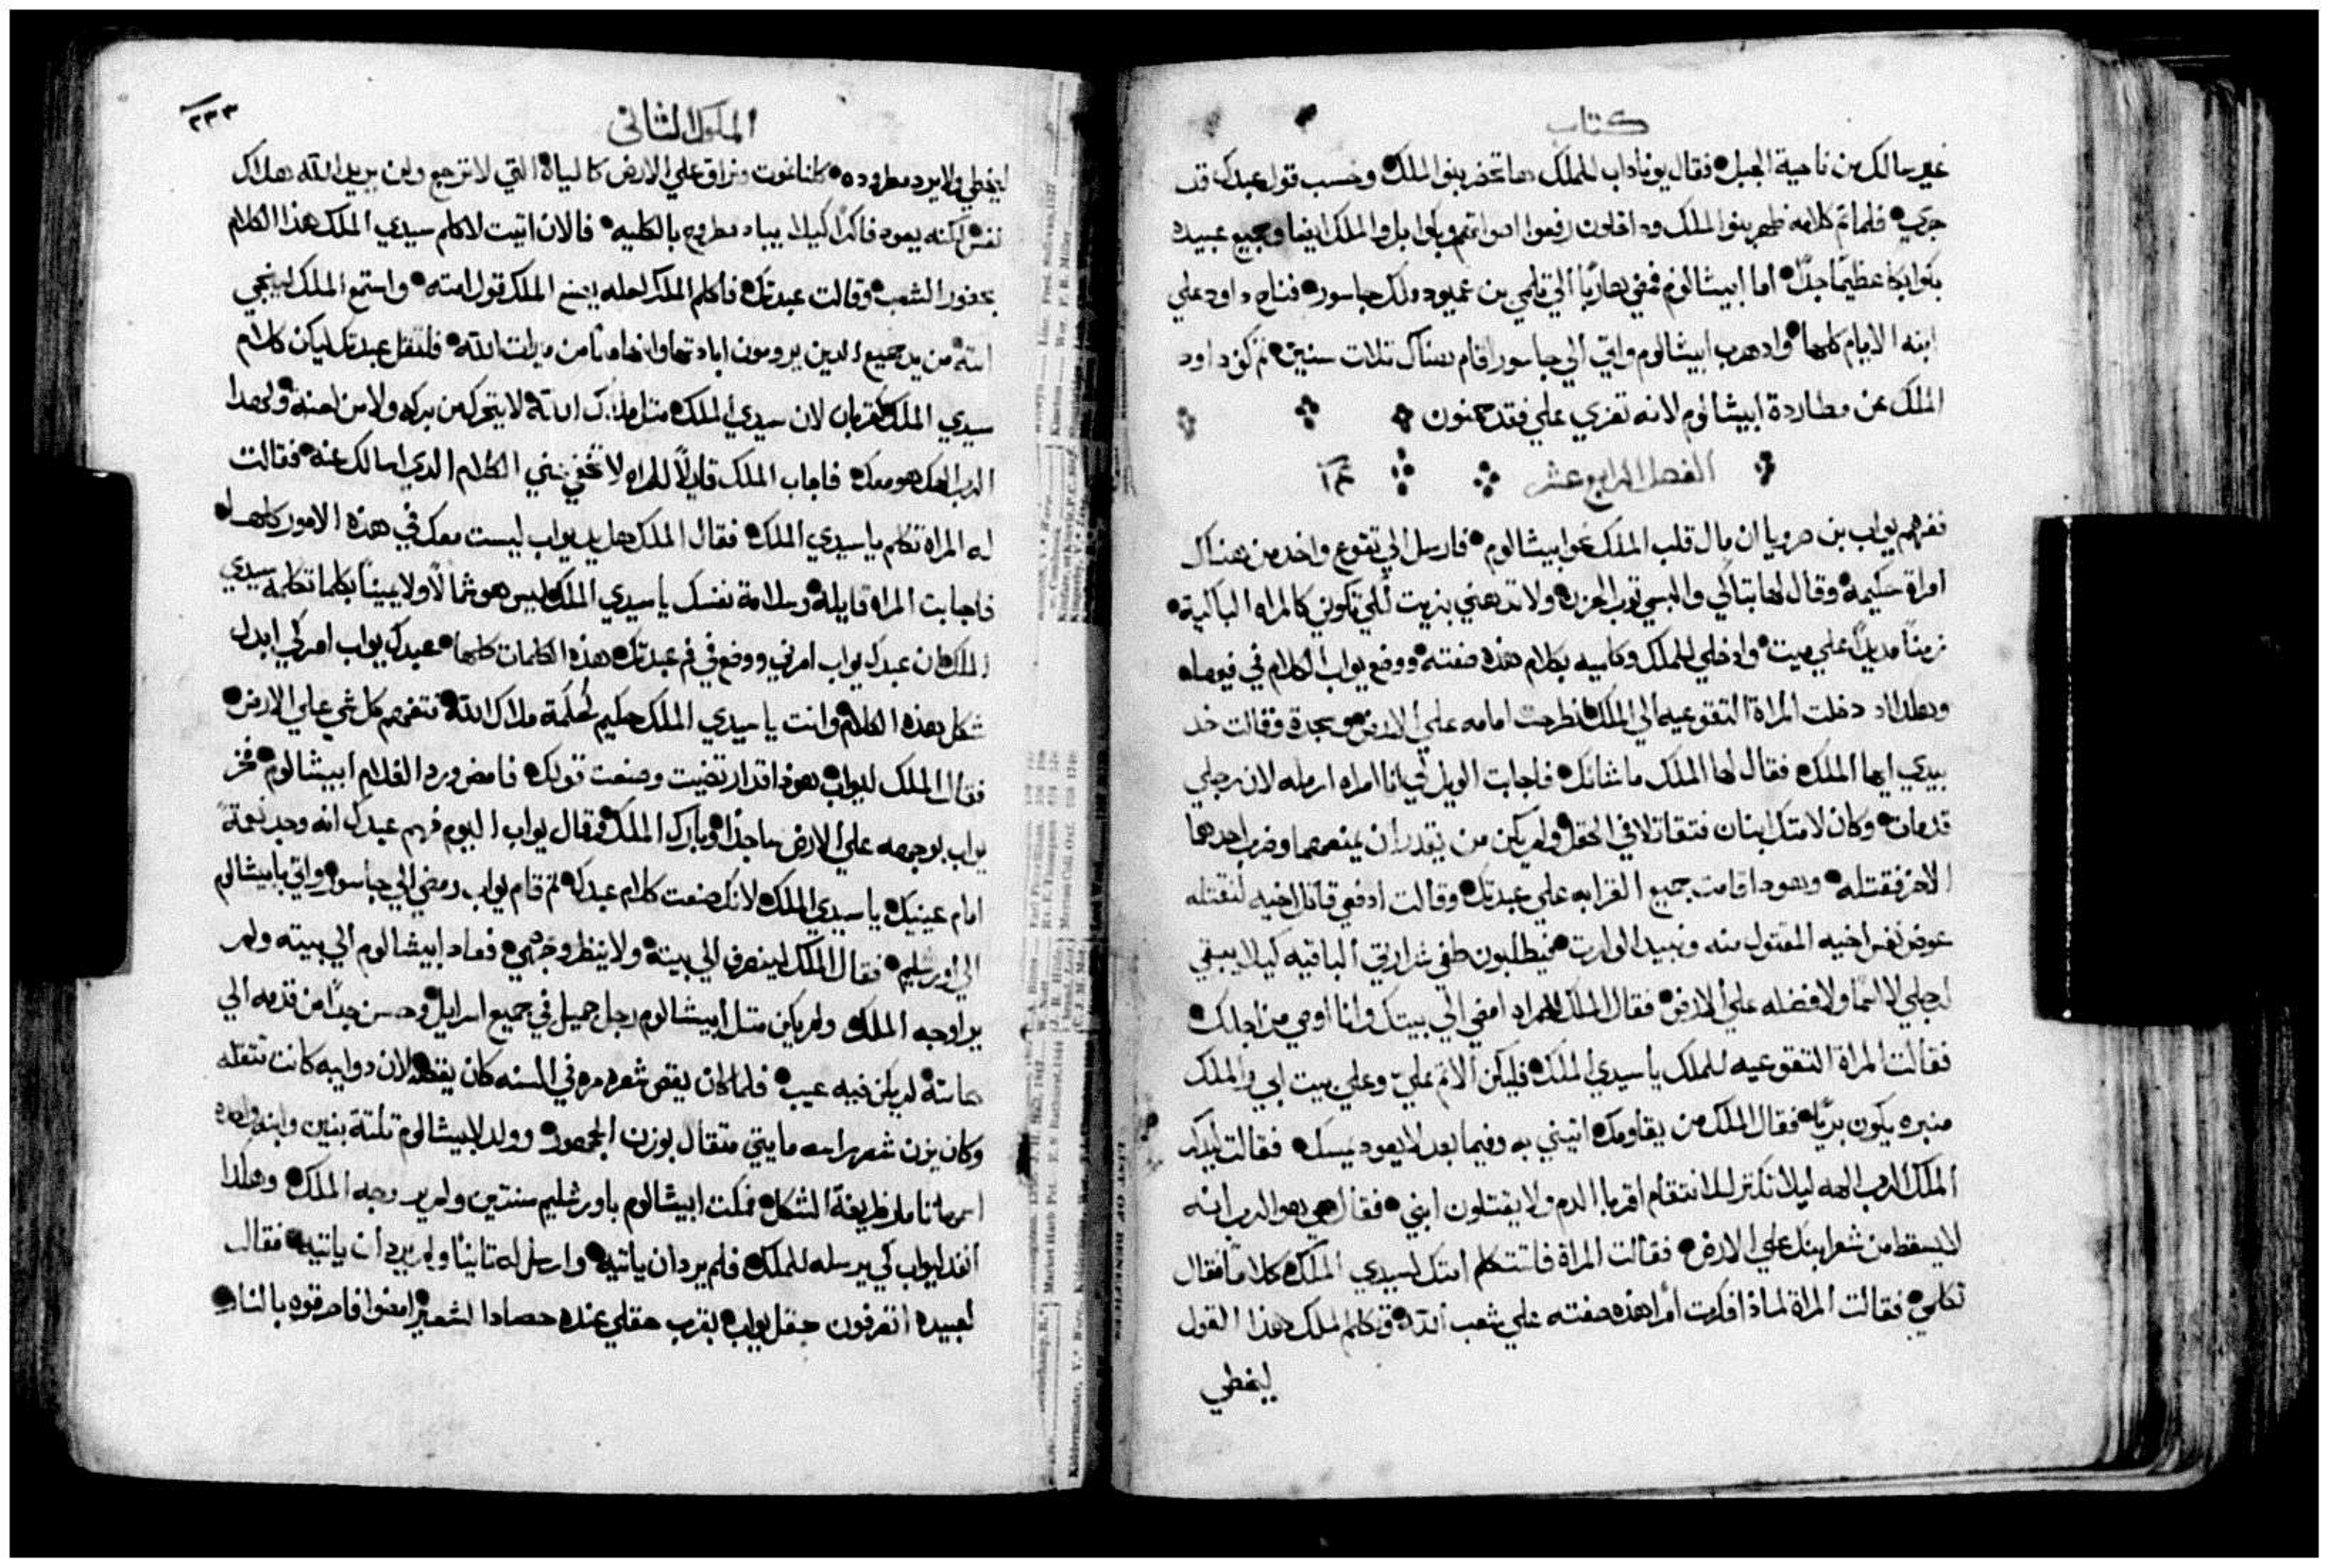 كتاب
غفير سالك من ناحية الجبل فقال يوناداب للملك هاتحضر بنو الملك وحسب قول عبدك قد
جري فلما تم كلامه ظهر بنوا الملك وداخلون رفعوا اصواتهم وبكوا بل والملك ايضا وجميع عبيده
بكوا بكا عظيمًا جدًا اما ابيشالوم فمضي هاربًا الي تلمي بن عميود ملك جاسور فناح داود علي
ابنه الايام كلها واذ هرب ابيشالوم واتي الي جاسور اقام هناك تلات سنين ثم كف داود
الملك عن مطاردة ابيشالوم لانه تعزي علي فقد حمنون
الفصل الرابع عشر ١٤
ففهم يواب بن صرويا ان مال قلب الملك نحو ابيشالوم فارسل الي تقوع واخد من هناك
امراة حكيمة وقال لها تباكي والبسي توب الحزن ولا تدهني بزيت لكي تكوني كالمراه الباكية
زمنًا مديدًا علي ميت وادخلي للملك وكلميه بكلام هذه صفته ووضع يواب الكلام في فيها
وهكدا اد دخلت المراة التقوعيه الي الملك انطرحت امامه علي الارض وسجدة وقالت خد
بيدي ايها الملك فقال لها الملك ماشانك فاجابت الويل لي انا امراه ارمله لان رجلي
قدمات وكان لامتك ابنان فتقاتلا في الحقل ولم يكن من يقدر ان يمنعهما وضرب احدهما
الاخر فقتله وهودا قامت جميع القرابه علي عبدتك وقالت ادفعي قاتل اخيه لنقتله
عوض نفس اخيه المقتول منه ونبيد الوارت فيطلبون طفي شرارتي الباقيه كيلا يبقي
لرجلي لا اسمًا ولا فضله علي الارض فقال الملك للمراه امضي الي بيتك وانا اوصي من اجلك
فقالت المراة التقوعيه للملك ياسيدي الملك فليكن الاتم عليّ وعلي بيت ابي والملك
منبره يكون بريًا فقال الملك من يقاومك اتيني به وفيما بعد لا يعود يمسك فقالت ليدكر
الملك الرب الهه ليلا تكتر للانتقام اقربا الدم ولا يقتلون ابني فقال حي هو الرب انه
لا يسقط من شعر ابنك علي الارض فقالت المراة فلتتكلم امتك لسيدي الملك كلامًا فقال
تكلمي فقالت المراة لماذا فكرت أمرا هذه صفته علي شعب الله وتكلم الملك هذا القول
ليخطي
الملوك الثاني
٢٣٣
ليخطي ولا يرد مطروده كلنا نموت ونراق علي الارض كالمياه التي لا ترجع ولن يريد الله هلاك
نفس لكنه يعود فاكرًا كيلا يباد مطروح بالكليه فالان اتيت لاكلم سيدي الملك هذا الكلام
بحضور الشعب وقالت عبدتك فاكلم الملك لعله يصنع الملك قول امته واستمع الملك لينجي
امته من يد جميع الدين يرومون ابادتها وابنها معًا من ميرات الله فلتقل عبدتك ليكن كلام
سيدي الملك كقربان لان سيدي الملك متل ملاك الله لا يتحرك من بركه ولا من لعنه ولهدا
الرب الهك هو معك فاجاب الملك قايلًا للمراه لا تخفي عني الكلام الدي اسالك عنه فقالت
له المراه تكلم ياسيدي الملك فقال الملك هل يد يواب ليست معك في هذه الامور كلها
فاجابت المراه قايله وسلامة نفسك ياسيدي الملك ليس هو شمالًا ولا يمينًا بكلما تكلمه سيدي
الملك ان عبدك يواب امرني ووضع في فم عبدتك هذه الكلمات كلها عبدك يواب امر كي ابدل
شكل هذه الكلام وانت ياسيدي الملك حكيم كحكمة ملاك الله فتفهم كل شي علي الارض
فقال الملك ليواب هودا قد ارتضيت وصنعت قولك فامض ورد الغلام ابيشالوم فخر
يواب بوجهه علي الارض ساجدًا وبارك الملك وقال يواب اليوم فهم عبدك انه وجد نعمةً
امام عينيك ياسيدي الملك لانك صنعت كلام عبدك ثم قام يواب ومضي الي جاسور واتي بابيشالوم
الي اورشليم فقال الملك لينصرف الي بيته ولا ينظر وجهي فعاد ابيشالوم الي بيته ولم
يرا وجه الملك ولم يكن متل ابيشالوم رجل جميل في جميع اسراييل وحسن جدًا من قدمه الي
هامته لم يكن فيه عيب فلما كان يقص شعره مره في السنه كان يقصه لان دوايبه كانت تتقله
وكان يزن شعر راسه مايتي متقال بوزن الجمهور وولد لابيشالوم تلتة بنين وابنه واحده
اسمها تامار ظريفة الشكل فمكت ابيشالوم باورشليم سنتين ولم ير وجه الملك وهكدا
انفد ليواب كي يرسله للملك فلم يرد ان ياتيه وارسل له تانيًا ولم يرد ان ياتيه فقال
لعبيده اتعرفون حقل يواب بقرب حقلي عنده حصاد الشعير امضوا فاحرقوه بالنار